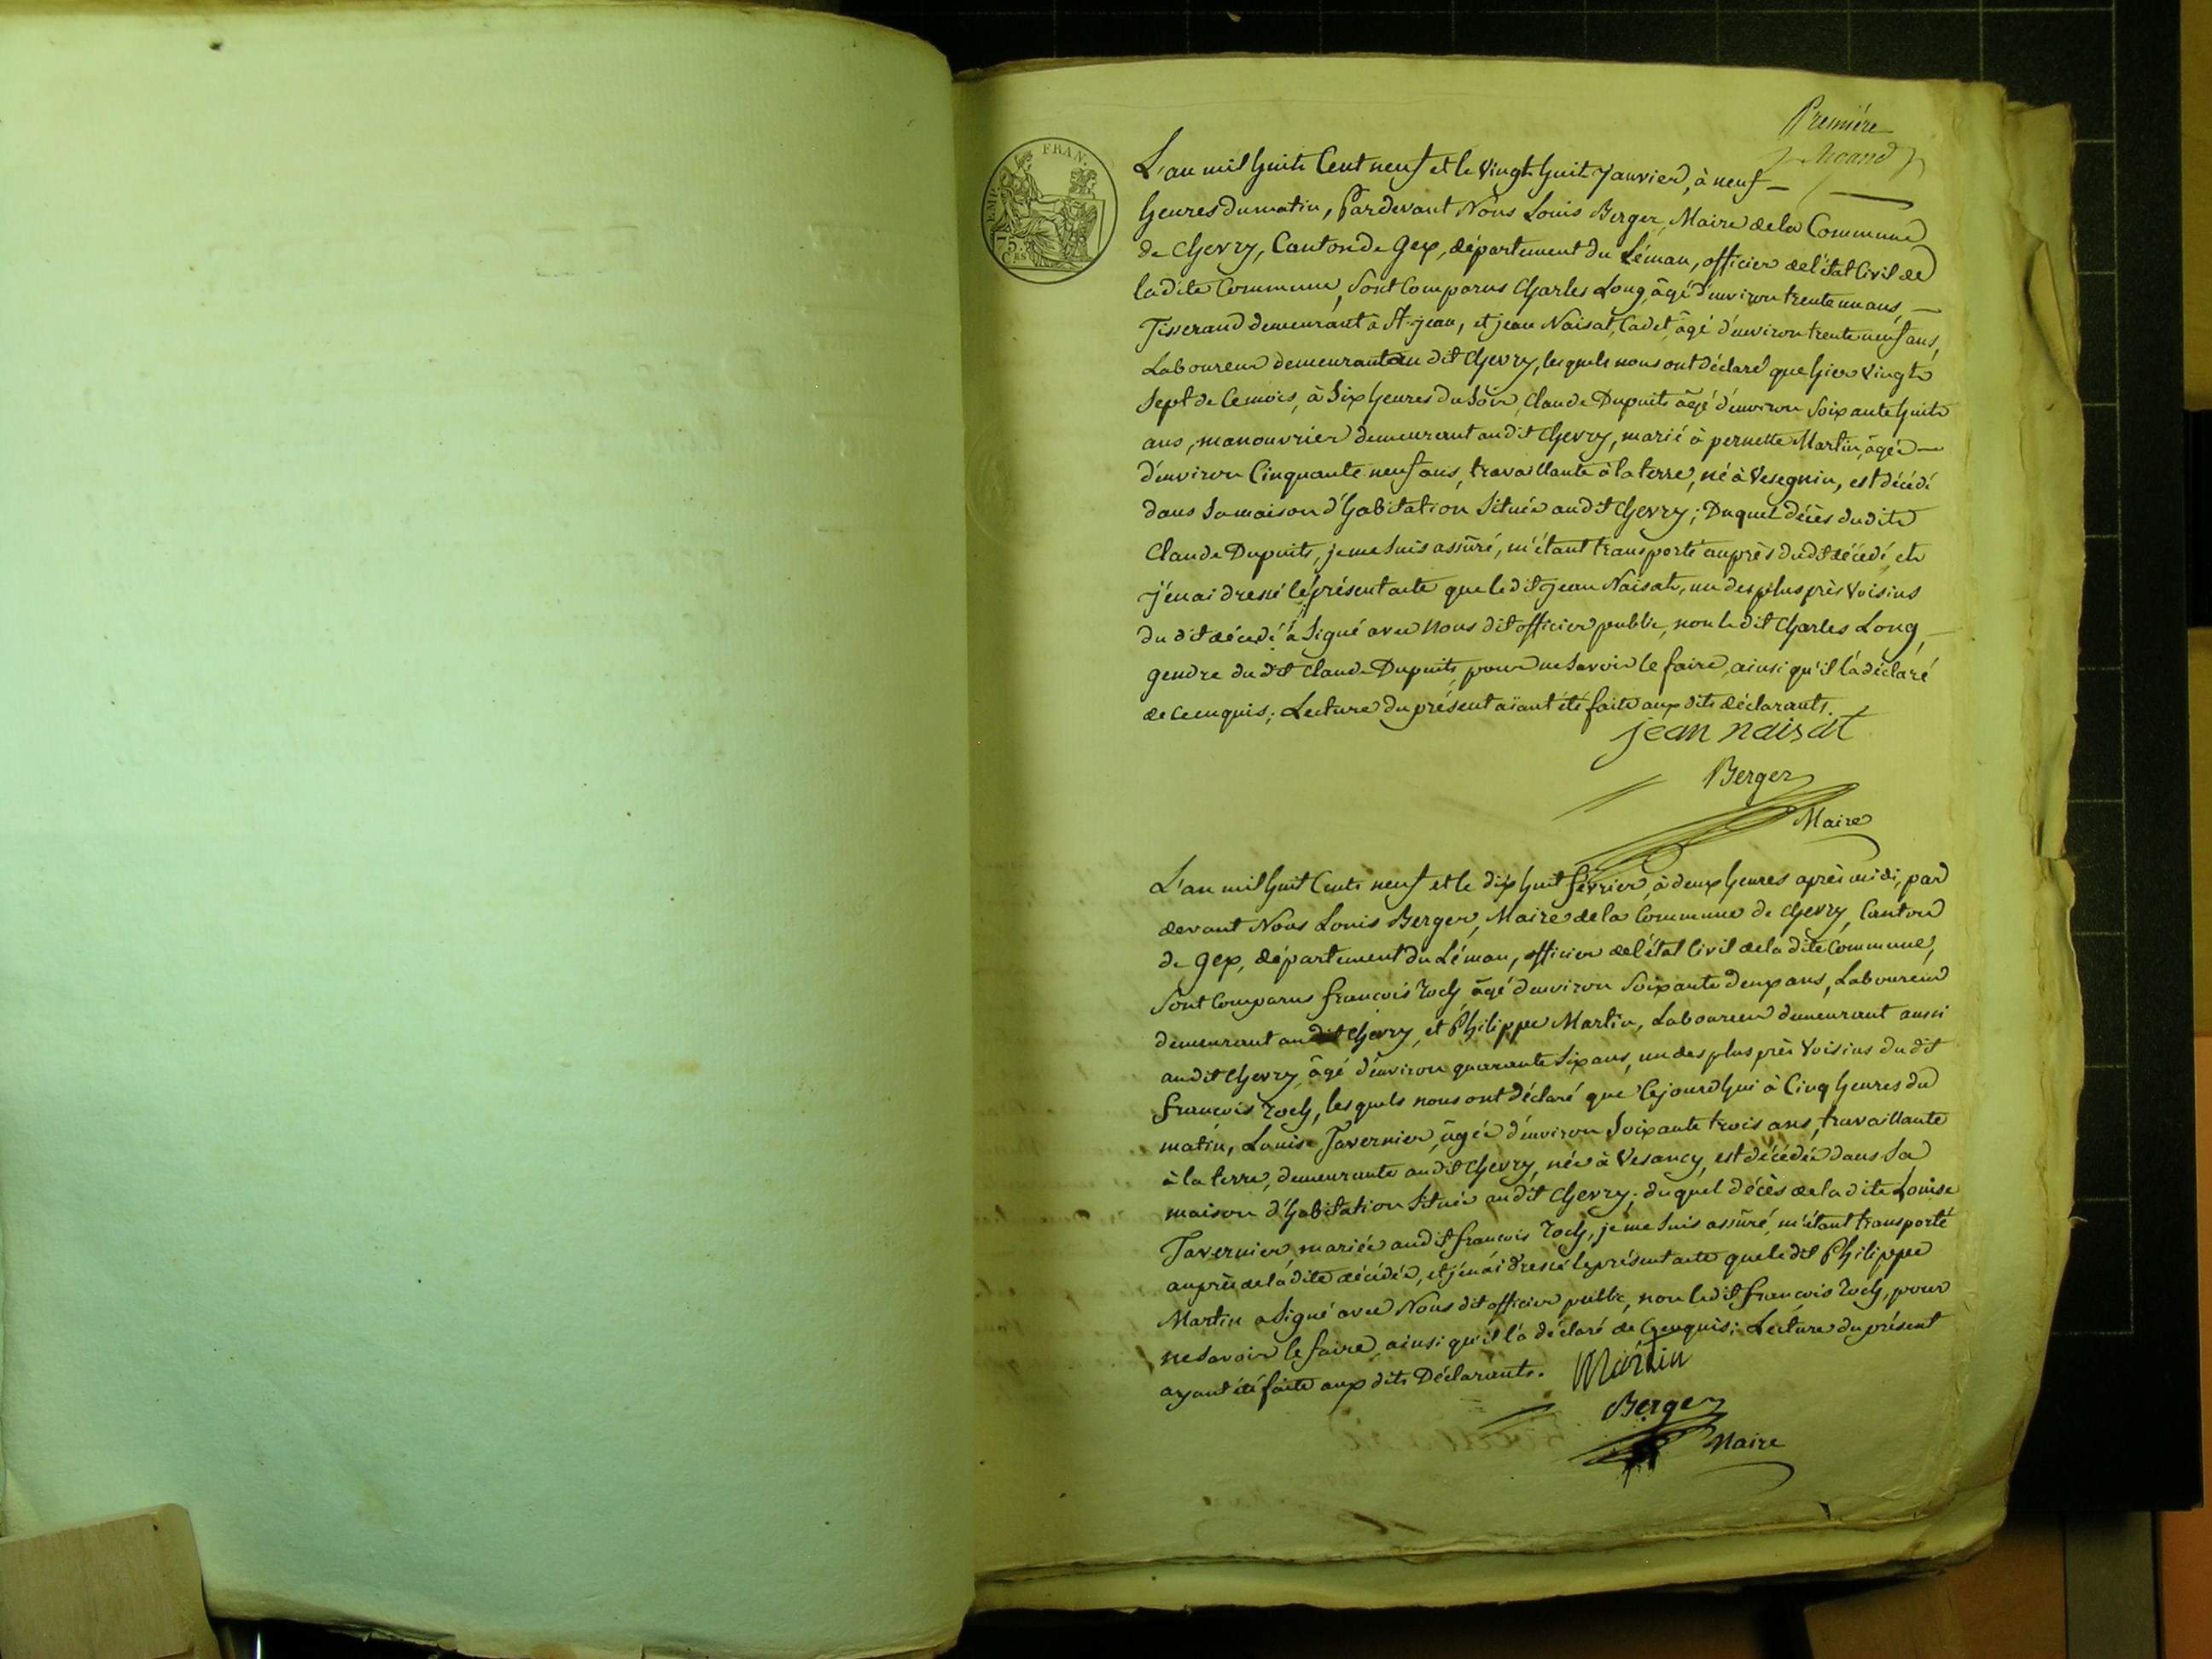 Première
EMP. FRAN.
75
CES
L'an mil huit Cent neuf et le vingt huit janvier, à neuf —
heures du matin, Pardevant Nous Louis Berger, Maire de la Commune
de Chevry, Canton de gex, département du Léman, officier de l'état Civil de
la dite Commune, sont Comparus Charles Long, âgé d'environ trente un ans, —
Tiserand demeurant à St. jean, et jean Naisat, Cadet, âgé d'environ trente neuf ans,
Laboureur demeurant au dit Chevry, lesquels nous ont déclaré que hier vingt
sept de ce mois, à Six heures du Soir, Claude Dupuits âgé d'environ Soixante huit
ans, manouvrier demeurant au dit Chevry, marié à pernette Martin, âgée —
d'environ Cinquante neuf ans, travaillante à la terre, né à Vesegnin, est décédé
dans sa maison d'habitation Située au dit Chevry; Duquel décès dudit
Claude Dupuits, je me suis assûré, m'étant transporté auprès dudit décédé, et
j'en ai dressé le présent acte que le dit jean Naisat, un des plus près Voisins
du dit décédé à Signé avec Nous dit officier public, non le dit Charles Long, —
gendre du dit Claude Dupuits, pour ne Savoir le faire, ainsi qu'il l'a déclaré
de ce enquis; Lecture du présent aïant été faite aux dits déclarants.
jean naisat
Berger
Maire
L'an mil huit Cents neuf et le dix huit février, à deux heures après midi, par
devant Nous Louis Berger, Maire de la Commune de Chevry, Canton
de gex, département du Léman, officier de l'état Civil de la dite Commune,
Sont Comparus françois Roch, âgé d'environ Soixante deux ans, Laboureur
demeurant au dit Chevry, et Philippe Martin, Laboureur demeurant aussi
au dit Chevry, âgé d'environ quarante Six ans, un des plus près Voisins du dit
françois Roch, lesquels nous ont déclaré que Cejourd'hui à Cinq heures du
matin, Louise Tavernier, âgée d'environ Soixante trois ans, travaillante
à la terre, demeurante au dit Chevry, née à Vesancy, est décédée dans Sa
maison d'habitation Située au dit Chevry; duquel décès de la dite Louise
Tavernier, mariée au dit françois Roch, je me suis assûré, m'étant transporté
auprès de la dite décédée, et j'en ai dressé le présent acte que le dit Philippe
Martin a Signé avec Nous dit officier public, non le dit françois Roch, pour
ne Savoir le faire, ainsi qu'il l'a déclaré de Ce enquis; Lecture du présent
ayant été faite aux dits Déclarants. Martin
Berger
Maire